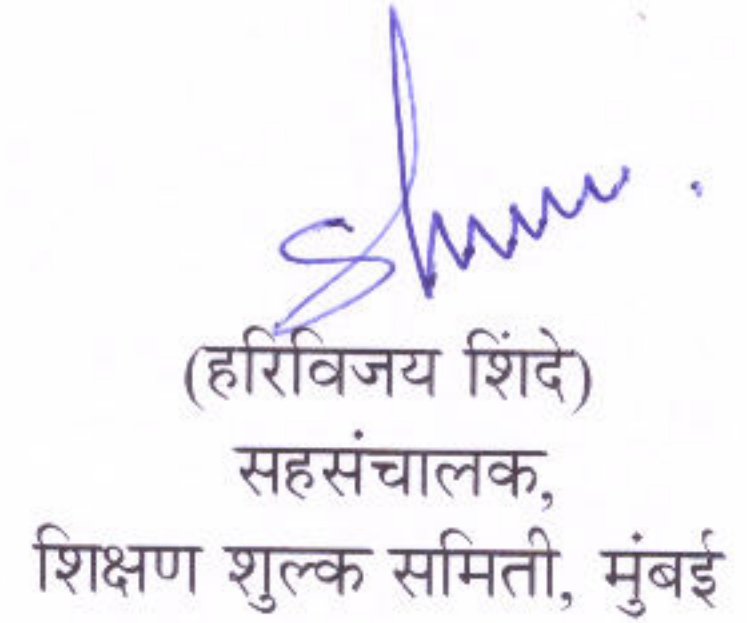 (हरिविजय शिंदे)
सहसंचालक,
शिक्षण शुल्क समिती, मुंबई